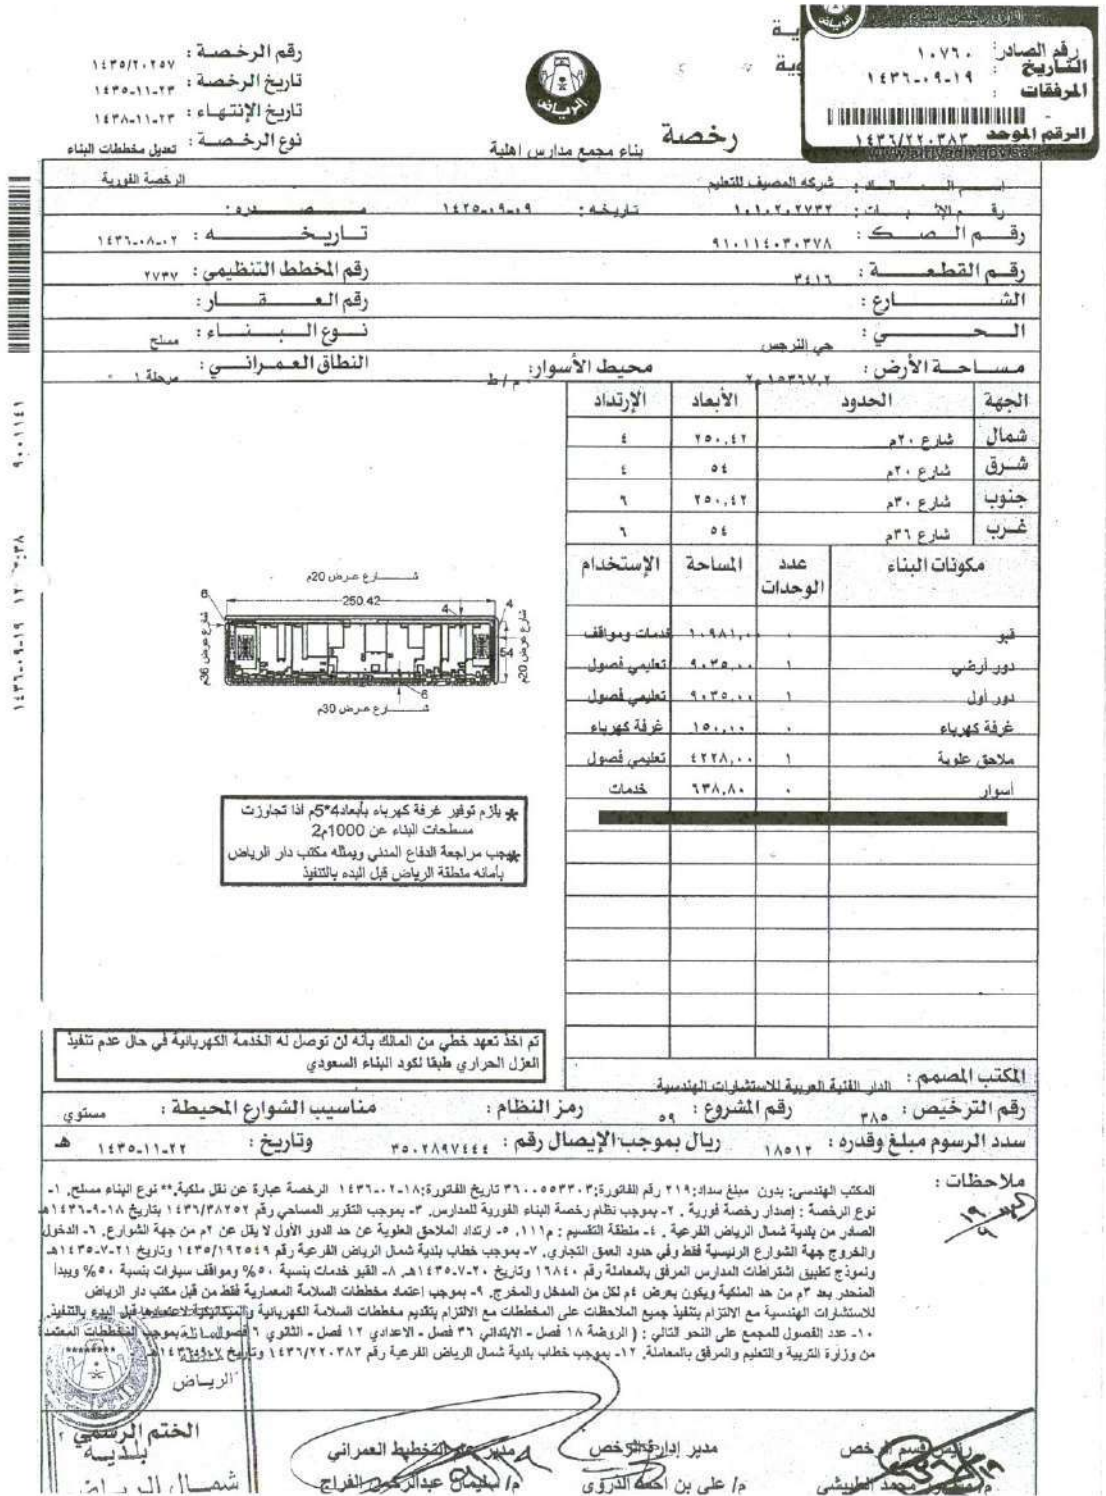 رقم الصادر: ١٠٧٦٠
التاريخ : ١٤٣٦-٠٩-١٩
المرفقات :
الرقم الموحد ١٤٣٦/٢٢٠٣٨٣
www.alriyadh.gov.sa
الرياض
رقم الرخصة : ١٤٣٥/٢٠٢٥٧
تاريخ الرخصة : ١٤٣٥-١١-٢٣
تاريخ الإنتهاء : ١٤٣٨-١١-٢٣
نوع الرخصة : تعديل مخططات البناء
رخصة
بناء مجمع مدارس اهلية
الرخصة الفورية
شركه المصيف للتعليم
رقم الإثبات : ١٠١٠٢٠٢٧٣٢ تاريخه : ١٤٢٥-٠٩-٠٩ مصدره :
رقم الصك : ٩١٠١١٤٠٣٠٣٧٨ تاريخه : ١٤٣٦-٠٨-٠٢
رقم القطعة : ٣٤١٦ رقم المخطط التنظيمي : ٢٧٣٧
الشارع : رقم العقار :
الحي : حي النرجس نوع البناء : مسلح
مساحة الأرض : ١٥٣٦٧,٢ م٢ محيط الأسوار: م/ط النطاق العمراني : مرحلة ١
الجهة الحدود الأبعاد الإرتداد
شمال شارع ٢٠م ٢٥٠,٤٢ ٤
شرق شارع ٢٠م ٥٤ ٤
جنوب شارع ٣٠م ٢٥٠,٤٢ ٦
غرب شارع ٣٦م ٥٤ ٦
مكونات البناء عدد الوحدات المساحة الإستخدام
قبو ٠ ١٠٩٨١,٠٠ خدمات ومواقف
دور أرضي ١ ٩٠٣٥,٠٠ تعليمي فصول
دور أول ١ ٩٠٣٥,٠٠ تعليمي فصول
غرفة كهرباء ٠ ١٥٠,٠٠ غرفة كهرباء
ملاحق علوية ١ ٤٢٢٨,٠٠ تعليمي فصول
أسوار ٠ ٦٣٨,٨٠ خدمات
شارع عرض 20م
250.42
6
4
4
54
شارع عرض 36م
شارع عرض 20م
6
شارع عرض 30م
* يلزم توفير غرفة كهرباء بأبعاد4*5م اذا تجاوزت
مسطحات البناء عن 1000م2
*يجب مراجعة الدفاع المدني ويمثله مكتب دار الرياض
بأمانه منطقة الرياض قبل البدء بالتنفيذ
تم اخذ تعهد خطي من المالك بأنه لن توصل له الخدمة الكهربائية في حال عدم تنفيذ
العزل الحراري طبقا لكود البناء السعودي
المكتب المصمم : الدار الفنية العربية للاستشارات الهندسية
رقم الترخيص : ٣٨٥ رقم المشروع : ٥٩ رمز النظام : مناسيب الشوارع المحيطة : مستوي
سدد الرسوم مبلغ وقدره : ١٨٥١٢ ريال بموجب الإيصال رقم : ٣٥٠٢٨٩٧٤٤٤ وتاريخ : ١٤٣٥-١١-٢٢ هـ
ملاحظات :
المكتب الهندسي: بدون مبلغ سداد:٢١٩ رقم الفاتورة:٣٦٠٠٥٥٣٣٠٣ تاريخ الفاتورة:١٨-٠٢-١٤٣٦ الرخصة عبارة عن نقل ملكية,** نوع البناء مسلح, ١-
نوع الرخصة : إصدار رخصة فورية . ٢- بموجب نظام رخصة البناء الفورية للمدارس. ٣- بموجب التقرير المساحي رقم ١٤٣٦/٣٨٢٥٢ بتاريخ ١٨-٩-١٤٣٦هـ
الصادر من بلدية شمال الرياض الفرعية . ٤- منطقة التقسيم : م١١١. ٥- ارتداد الملاحق العلوية عن حد الدور الأول لا يقل عن ٢م من جهة الشوارع. ٦- الدخول
والخروج جهة الشوارع الرئيسية فقط وفي حدود العمق التجاري. ٧- بموجب خطاب بلدية شمال الرياض الفرعية رقم ١٤٣٥/١٩٢٥٤٩ وتاريخ ٢١-٧-١٤٣٥هـ
ونموذج تطبيق اشتراطات المدارس المرفق بالمعاملة رقم ١٦٨٤٠ وتاريخ ٢٠-٧-١٤٣٥هـ. ٨- القبو خدمات بنسبة ٥٠% ومواقف سيارات بنسبة ٥٠% ويبدأ
المنحدر بعد ٣م من حد الملكية ويكون بعرض ٤م لكل من المدخل والمخرج. ٩- بموجب إعتماد مخططات السلامة المعمارية فقط من قبل مكتب دار الرياض
للاستشارات الهندسية مع الالتزام بتنفيذ جميع الملاحظات على المخططات مع الالتزام بتقديم مخططات السلامة الكهربائية والميكانيكية لاعتمادها قبل البدء بالتنفيذ.
١٠- عدد الفصول للمجمع على النحو التالي : ( الروضة ١٨ فصل - الابتدائي ٣٦ فصل - الاعدادي ١٢ فصل - الثانوي ٦ فصول بموجب المخططات المعتمدة
من وزارة التربية والتعليم والمرفق بالمعاملة. ١٢- بموجب خطاب بلدية شمال الرياض الفرعية رقم ١٤٣٦/٢٢٠٣٨٣ وتاريخ
الرياض
الختم الرسمي
بلدية
شمال الرياض
رئيس قسم الرخص مدير إدارة الرخص مدير التخطيط العمراني
محمد الطبيشي م/ علي بن احمد الدروي م/ سليمان عبدالرحمن الفراج
١٤٣٦-٠٩-١٩ ٩٠٠١١٤١